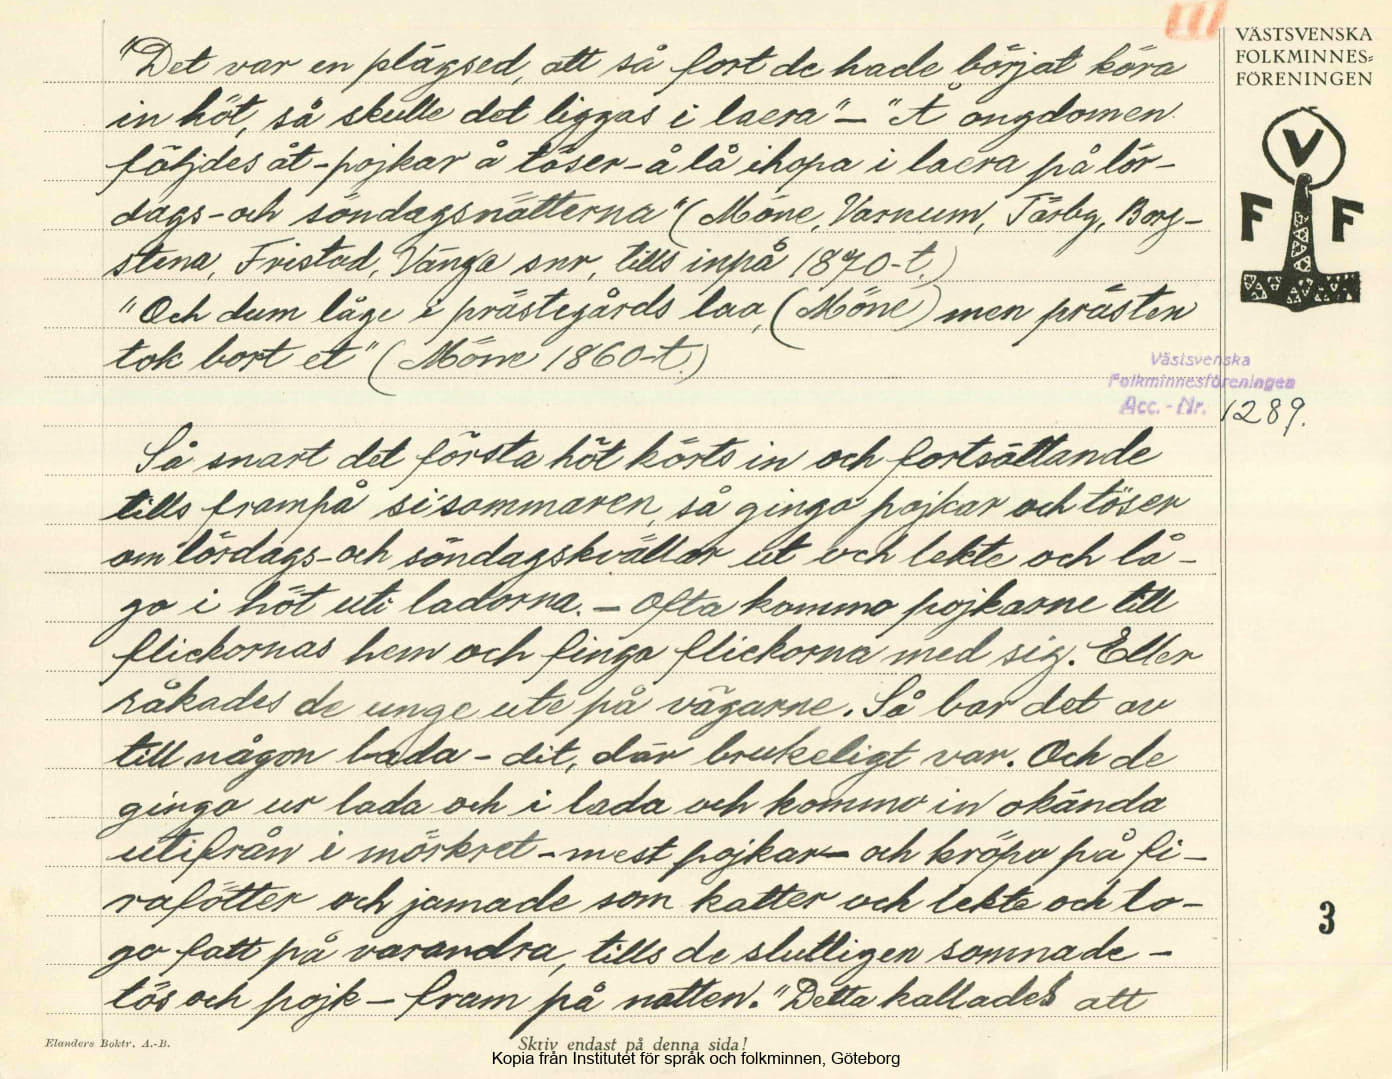 III
VÄSTSVENSKA
FOLKMINNES=
FÖRENINGEN
V
F F
"Det var en plägsed, att så fort de hade börjat köra
in höt, så skulle det liggas i laera" — "Å ongdomen
följdes åt - pojkar å töser - å lå ihopa i laera på lör-
dags- och söndagsnätterna" (Möne, Varnum, Tärby, Borg-
stena, Fristad, Vänga snr, tills inpå 1870-t.)
"Och dum låge i prästegårds laa, (Möne) men prästen
tok bort et" (Möne 1860-t.)
Västsvenska
Folkminnesföreningen
Acc. - Nr. 1289.
Så snart det första höt körts in och fortsättande
tills frampå si'sommaren, så gingo pojkar och töser
om lördags- och söndagskvällar ut och lekte och lå-
go i höt uti ladorna. — Ofta kommo pojkarne till
flickornas hem och fingo flickorna med sig. Eller
råkades de unge ute på vägarne. Så bar det av
till någon lada - dit, där brukeligt var. Och de
gingo ur lada och i lada och kommo in okända
utifrån i mörkret - mest pojkar — och kröpo på fy-
rafötter och jamade som katter och lekte och to-
go fatt på varandra, tills de slutligen somnade -
tös och pojk — fram på natten. "Detta kallades att
3
Elanders Boktr. A.-B.
Skriv endast på denna sida!
Kopia från Institutet för språk och folkminnen, Göteborg